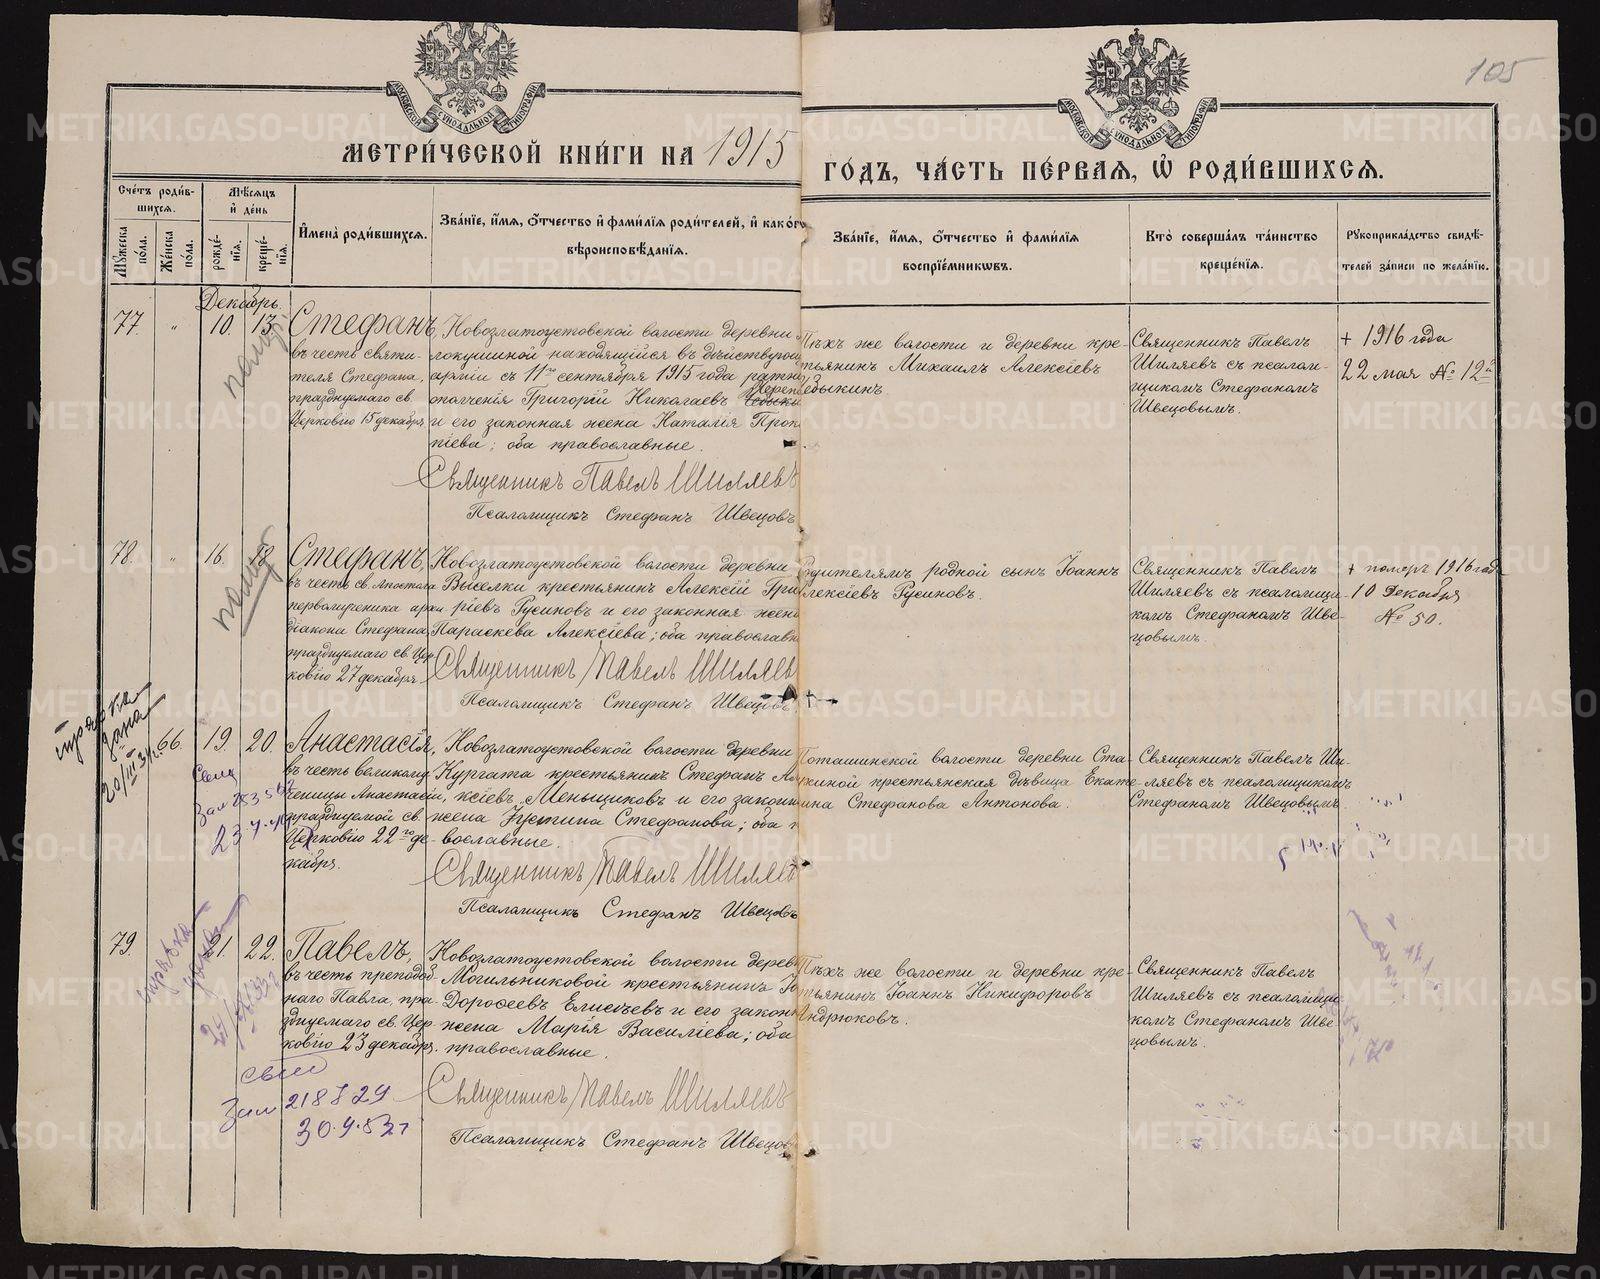 105
МОСКОВСКОЙ СѴНОДАЛЬНОЙ ТИПОГРАФІИ
МОСКОВСКОЙ СѴНОДАЛЬНОЙ ТИПОГРАФІИ
МЕТРИ́ЧЕСКОЙ КНИ́ГИ НА 1915 ГО́ДЪ, ЧА́СТЬ ПЕ́РВАЯ, Ѽ РОДИ́ВШИХСЯ.
Сче́тъ роди́вшихся.
Мꙋ́жеска по́ла.
Же́нска по́ла.
Мѣ́сяцъ и҆ де́нь
рожде́нїя.
креще́нїя.
И҆мена̀ роди́вшихся.
Зва́нїе, и҆́мя, ѻ҆́тчество и҆ фами́лїя роди́телей, и҆ како́гѡ
вѣроисповѣ́данїя.
Зва́нїе, и҆́мя, ѻ҆́тчество и҆ фами́лїя
воспрїе́мникѡвъ.
Кто̀ соверша́лъ та́инство
креще́нїя.
Рꙋкоприкла́дство свидѣ́-
телей за́писи по жела́нїю.
Декабрь.
77. " 10. 13.
Стефанъ,
въ честь святи-
теля Стефана,
празднуемаго св.
Церковію 15 декабря
Новозлатоустовской волости деревни
локушиной находящійся въ дѣйствующ
арміи съ 11го сентября 1915 года ратн
ополченія Григорій Николаевъ
и его законная жена Наталія Прок
піева; оба православные.
Священникъ Павелъ Шиляевъ
Псаломщикъ Стефанъ Швецовъ
Тѣхъ же волости и деревни кре-
стьянинъ Михаилъ Алексіевъ
Священникъ Павелъ
Шиляевъ съ псалом-
щикомъ Стефаномъ
Швецовымъ.
+ 1916 года
22 мая № 12
78. " 16. 18.
Стефанъ,
въ честь св. Апостола
первомученика архи
діакона Стефана,
празднуемаго св. Цер
ковію 27 декабря.
Новозлатоустовской волости деревни
Выселки крестьянинъ Алексій Гри
ріевъ Русиновъ и его законная жена
Параскева Алексіева; оба православн
Священникъ Павелъ Шиляевъ
Псаломщикъ Стефанъ Швецовъ
Родителямъ родной сынъ Іоаннъ
Алексіевъ Русиновъ.
Священникъ Павелъ
Шиляевъ съ псаломщи-
комъ Стефаномъ Шве-
цовымъ.
+ померъ 1916 год
10 Декабря
№ 50.
66. 19. 20.
Анастасія,
въ честь великому-
ченицы Анастасіи,
празднуемой св.
Церковію 22го де-
кабря.
Новозлатоустовской волости деревни
Кургата крестьянинъ Стефанъ Але
ксіевъ Меньщиковъ и его законн
жена Іустина Стефанова; оба п
вославные.
Священникъ Павелъ Шиляевъ
Псаломщикъ Стефанъ Швецовъ
Поташинской волости деревни Ста-
ркиной крестьянская дѣвица Екате
рина Стефанова Антонова.
Священникъ Павелъ Ши-
ляевъ съ псаломщикомъ
Стефаномъ Швецовымъ.
79. 21. 22.
Павелъ,
въ честь преподоб-
наго Павла, пра-
зднуемаго св. Цер
ковію 23 декабря.
Новозлатоустовской волости дерев
Могильниковой крестьянинъ Іо
Дороѳеевъ Елисѣевъ и его законн
жена Марія Василіева; оба
православные.
Священникъ Павелъ Шиляевъ
Псаломщикъ Стефанъ Швецовъ
Тѣхъ же волости и деревни кре-
стьянинъ Іоаннъ Никифоровъ
Андрюковъ.
Священникъ Павелъ
Шиляевъ съ псаломщи
комъ Стефаномъ Шве
цовымъ.
METRIKI.GASO-URAL.RU